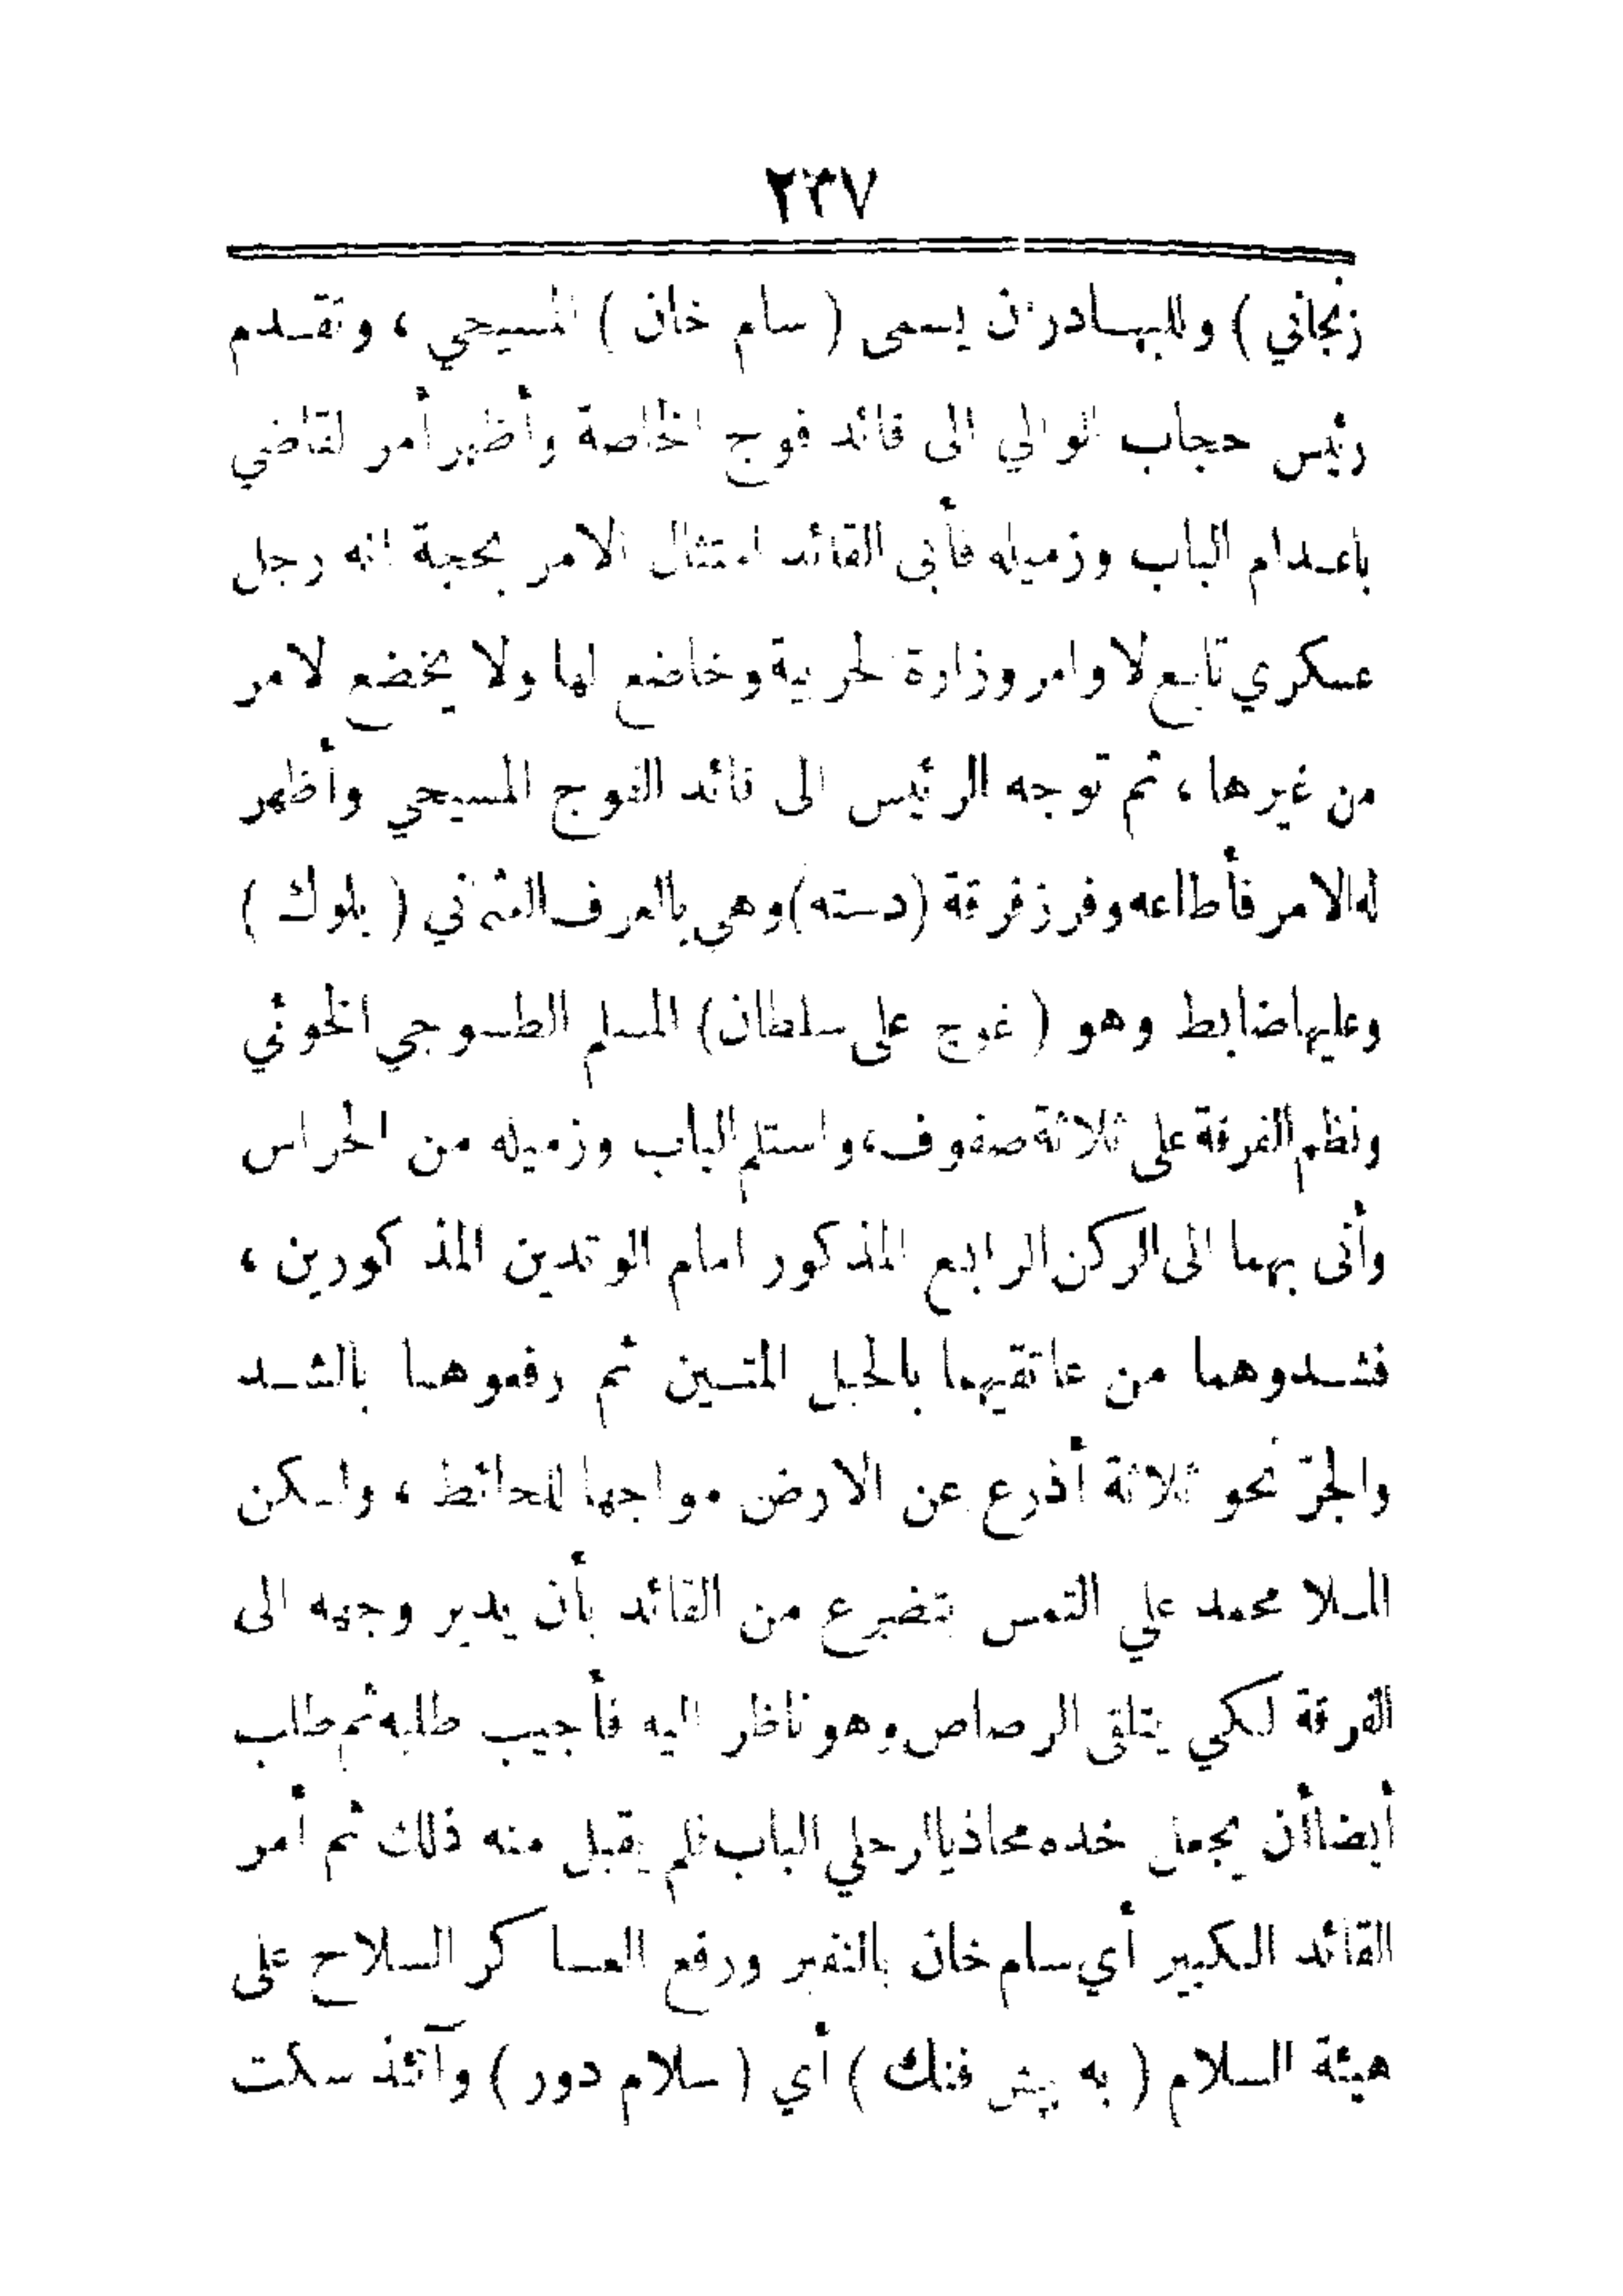 ٢٣٧
زنجاني ) وللبهادران يسمى ( سام خان ) المسيحي ، وتقدم
رئيس حجاب الوالي الى قائد فوج الخاصة وأظهر أمر القاضي
باعدام الباب وزميله فأبى القائد امتثال الامر بحجة انه رجل
عسكري تابع لاوامر وزارة الحربية وخاضع لها ولا يخضع لامر
من غيرها ، ثم توجه الرئيس الى قائد الفوج المسيحي وأظهر
له الامر فأطاعه وفرز فرقة (دسته) وهي بالعرف العثماني ( بلوك )
وعليها ضابط وهو ( غوج على سلطان) المسلم الطسوجي الخوئي
ونظم الفرقة على ثلاثة صفوف، واستلم الباب وزميله من الحراس
وأتى بهما الى الركن الرابع المذكور امام الوتدين المذكورين ،
فشدوهما من عاتقيهما بالحبل المتين ثم رفعوهما بالشد
والجرّ نحو ثلاثة أذرع عن الارض مواجها للحائط ، ولكن
الملا محمد علي التمس بتضرع من القائد بأن يدير وجهه الى
الفرقة لكي يتلقى الرصاص وهو ناظر اليه فأجيب طلبه ثم طلب
أيضاأن يجعل خده محاذيالرجلي الباب فلم يقبل منه ذلك ثم أمر
القائد الكبير أي سام خان بالنفير ورفع العساكر السلاح على
هيئة السلام ( به پيش فنك ) أي ( سلام دور ) وآنئذ سكت